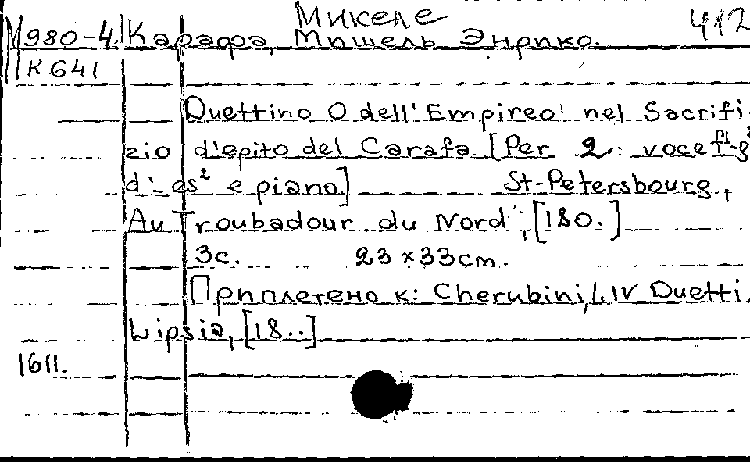 Микеле 412
М980-4 Карафа, Мишель Энрико.
К641
Duettino O dell' Empireo nel Sacrifi
zio d'epito del Carafa [Per 2 voce
d'-es² e piano] St-Petersbourg,
Au Troubadour du Nord, [180.]
3с. 23 × 33cm.
Приплетено к: Cherubini, LIV Duetti.
Lipsia, [18..]
1611.